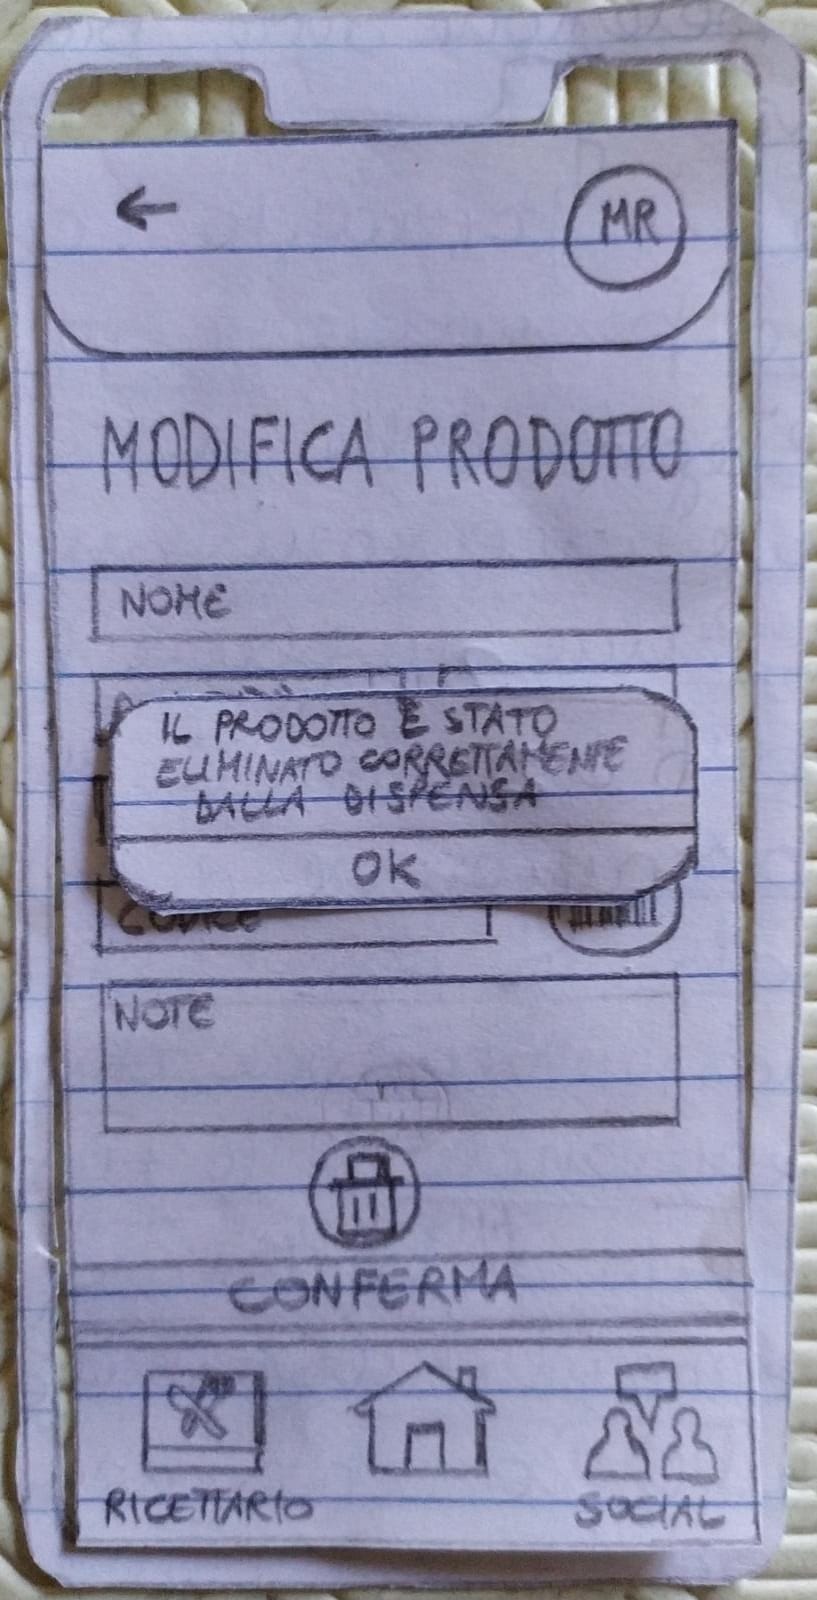 MR
MODIFICA PRODOTTO
NOME
IL PRODOTTO È STATO
ELIMINATO CORRETTAMENTE
DALLA DISPENSA
OK
CODICE
NOTE
CONFERMA
RICETTARIO
SOCIAL